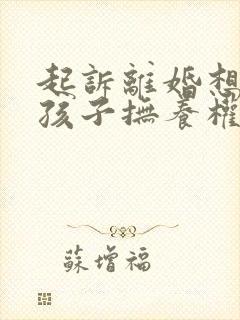 起訴離婚想
孩子撫養權
蘇增福